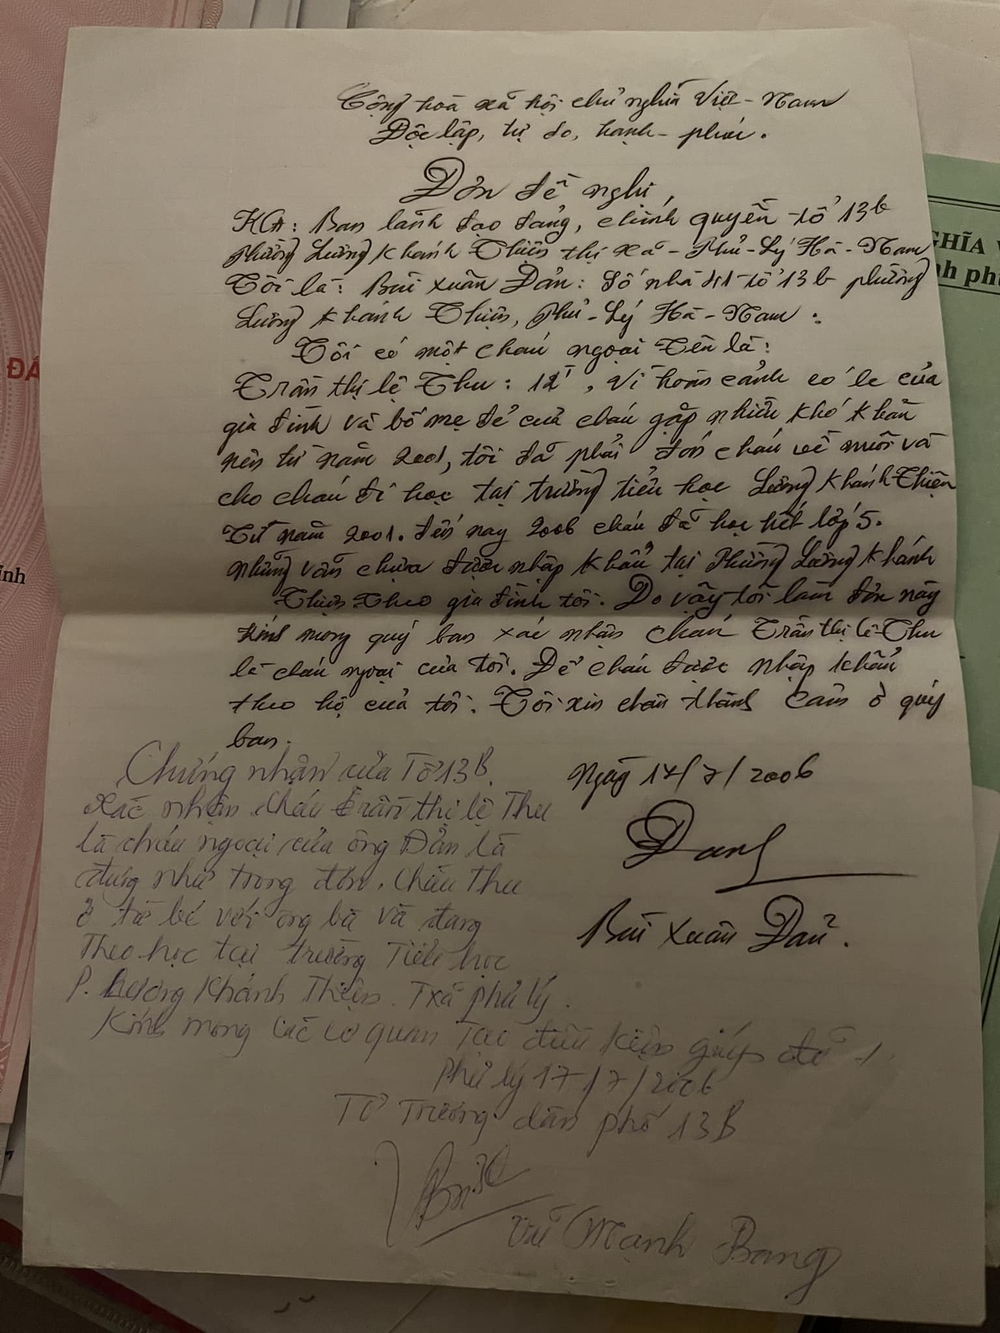 Cộng hoà xã hội chủ nghĩa Việt-Nam
Độc lập, tự do, hạnh-phúc.
Đơn đề nghị
KG: Ban lãnh đạo đảng, chính quyền tổ 13b
phường Lương Khánh Thiện thị xã-Phủ-Lý Hà-Nam
Tôi là: Bùi Xuân Đản: Số nhà 41 tổ 13b phường
Lương Khánh Thiện, Phủ-Lý Hà-Nam:
Tôi có một cháu ngoại Tên là:
Trần thị lệ Thu: 12T, Vì hoàn cảnh éo le của
gia đình và bố mẹ đẻ của cháu gặp nhiều khó khăn
nên từ năm 2001, tôi đã phải đón cháu về nuôi và
cho cháu đi học tại trường tiểu học Lương Khánh Thiện
Từ năm 2001. đến nay 2006 cháu đã học hết lớp 5.
nhưng vẫn chưa được nhập khẩu tại Phường Lương Khánh
Thiện Theo gia đình tôi. Do vậy tôi làm đơn này
kính mong quý ban xác nhận cháu Trần thị lệ Thu
là cháu ngoại của tôi. Để cháu được nhập khẩu
theo hộ của tôi. Tôi xin chân thành cảm ơn quý
ban.
Ngày 17/7/2006
Bùi Xuân Đản.
Chứng nhận của Tổ 13B.
Xác nhận cháu Trần thị lệ Thu
là cháu ngoại của ông Đản là
đúng như trong đơn. Cháu Thu
ở từ bé với ông bà và đang
Theo học tại trường Tiểu học
P. Lương Khánh Thiện. Txã phủ lý.
Kính mong các cơ quan Tạo điều kiện giúp đỡ
Phủ lý 17/7/2006
Tổ Trưởng dân phố 13B
Vũ Mạnh Bang
GHĨA V
nh phú
ĐẤ
ính